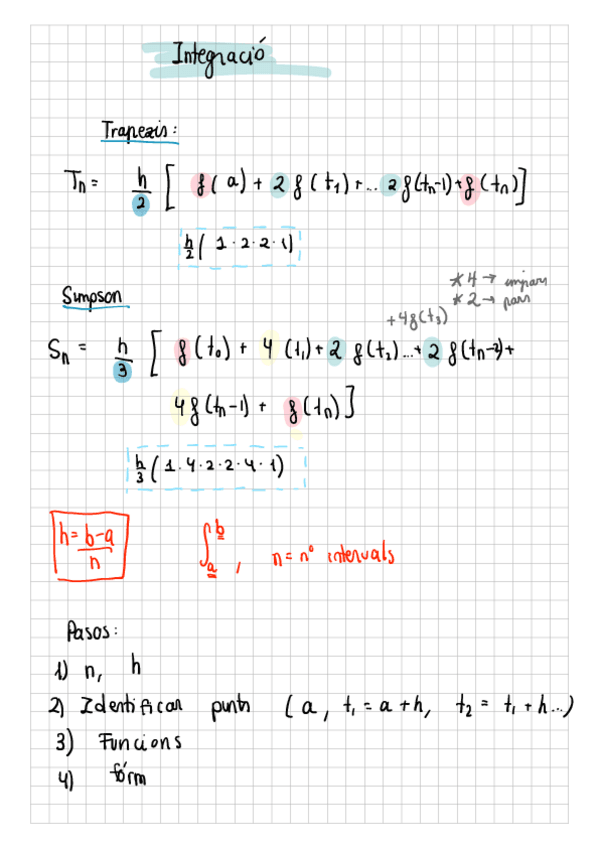 Integració
Trapezis:
Tn = h/2 [ f(a) + 2 f(t1) + ... 2 f(tn-1) + f(tn) ]
h/2 ( 1 · 2 · 2 · 1 )
* 4 → impars
* 2 → pars
Simpson
+ 4f(t3)
Sn = h/3 [ f(t0) + 4 (t1) + 2 f(t2) ... + 2 f(tn-2) +
4 f(tn-1) + f(tn) ]
h/3 ( 1 · 4 · 2 · 2 · 4 · 1 )
h = b-a/n
∫ a b , n = nº intervals
Pasos:
1) n, h
2) Identificar punts ( a, t1 = a + h, t2 = t1 + h ... )
3) Funcions
4) fórm